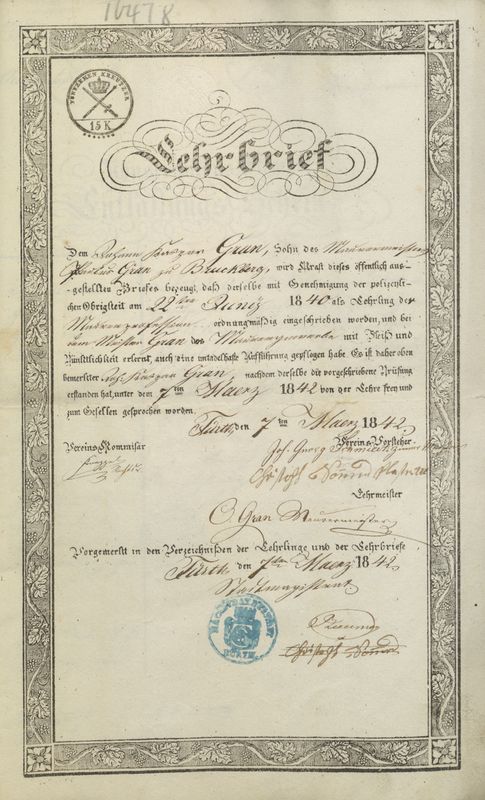 16478
FÜNFZEHN KREUZER
15 K
Lehrbrief
Dem Johann Kaspar Gran, Sohn des Maurermeisters
Gran zu Bruckberg, wird Kraft dieses öffentlich aus-
gestellten Briefes bezeugt, daß derselbe mit Genehmigung der polizeyli-
chen Obrigkeit am 22ten Juny 1840 als Lehrling der
Maurerprofession ordnungmäßig eingeschrieben worden, und bei
dem Meister Gran das Maurergewerbe mit Fleiß und
Pünktlichkeit erlernt, auch eine untadelhafte Aufführung gepflogen habe. Es ist daher oben
bemerkter Joh. Kaspar Gran, nachdem derselbe die vorgeschriebene Prüfung
erstanden hat, unter dem 7ten Maerz 1842 von der Lehre frey und
zum Gesellen gesprochen worden.
Fürth, den 7ten Maerz 1842
Vereins-Kommisär
Vereins-Vorsteher
Joh. Georg Schmidt
Christoph
Lehrmeister
Gran Maurermeister
Vorgemerkt in den Verzeichnißen der Lehrlinge und der Lehrbriefe
Fürth den 7ten Maerz 1842
Stadtmagistrat
MAGISTRAT STADT
FÜRTH
Christoph